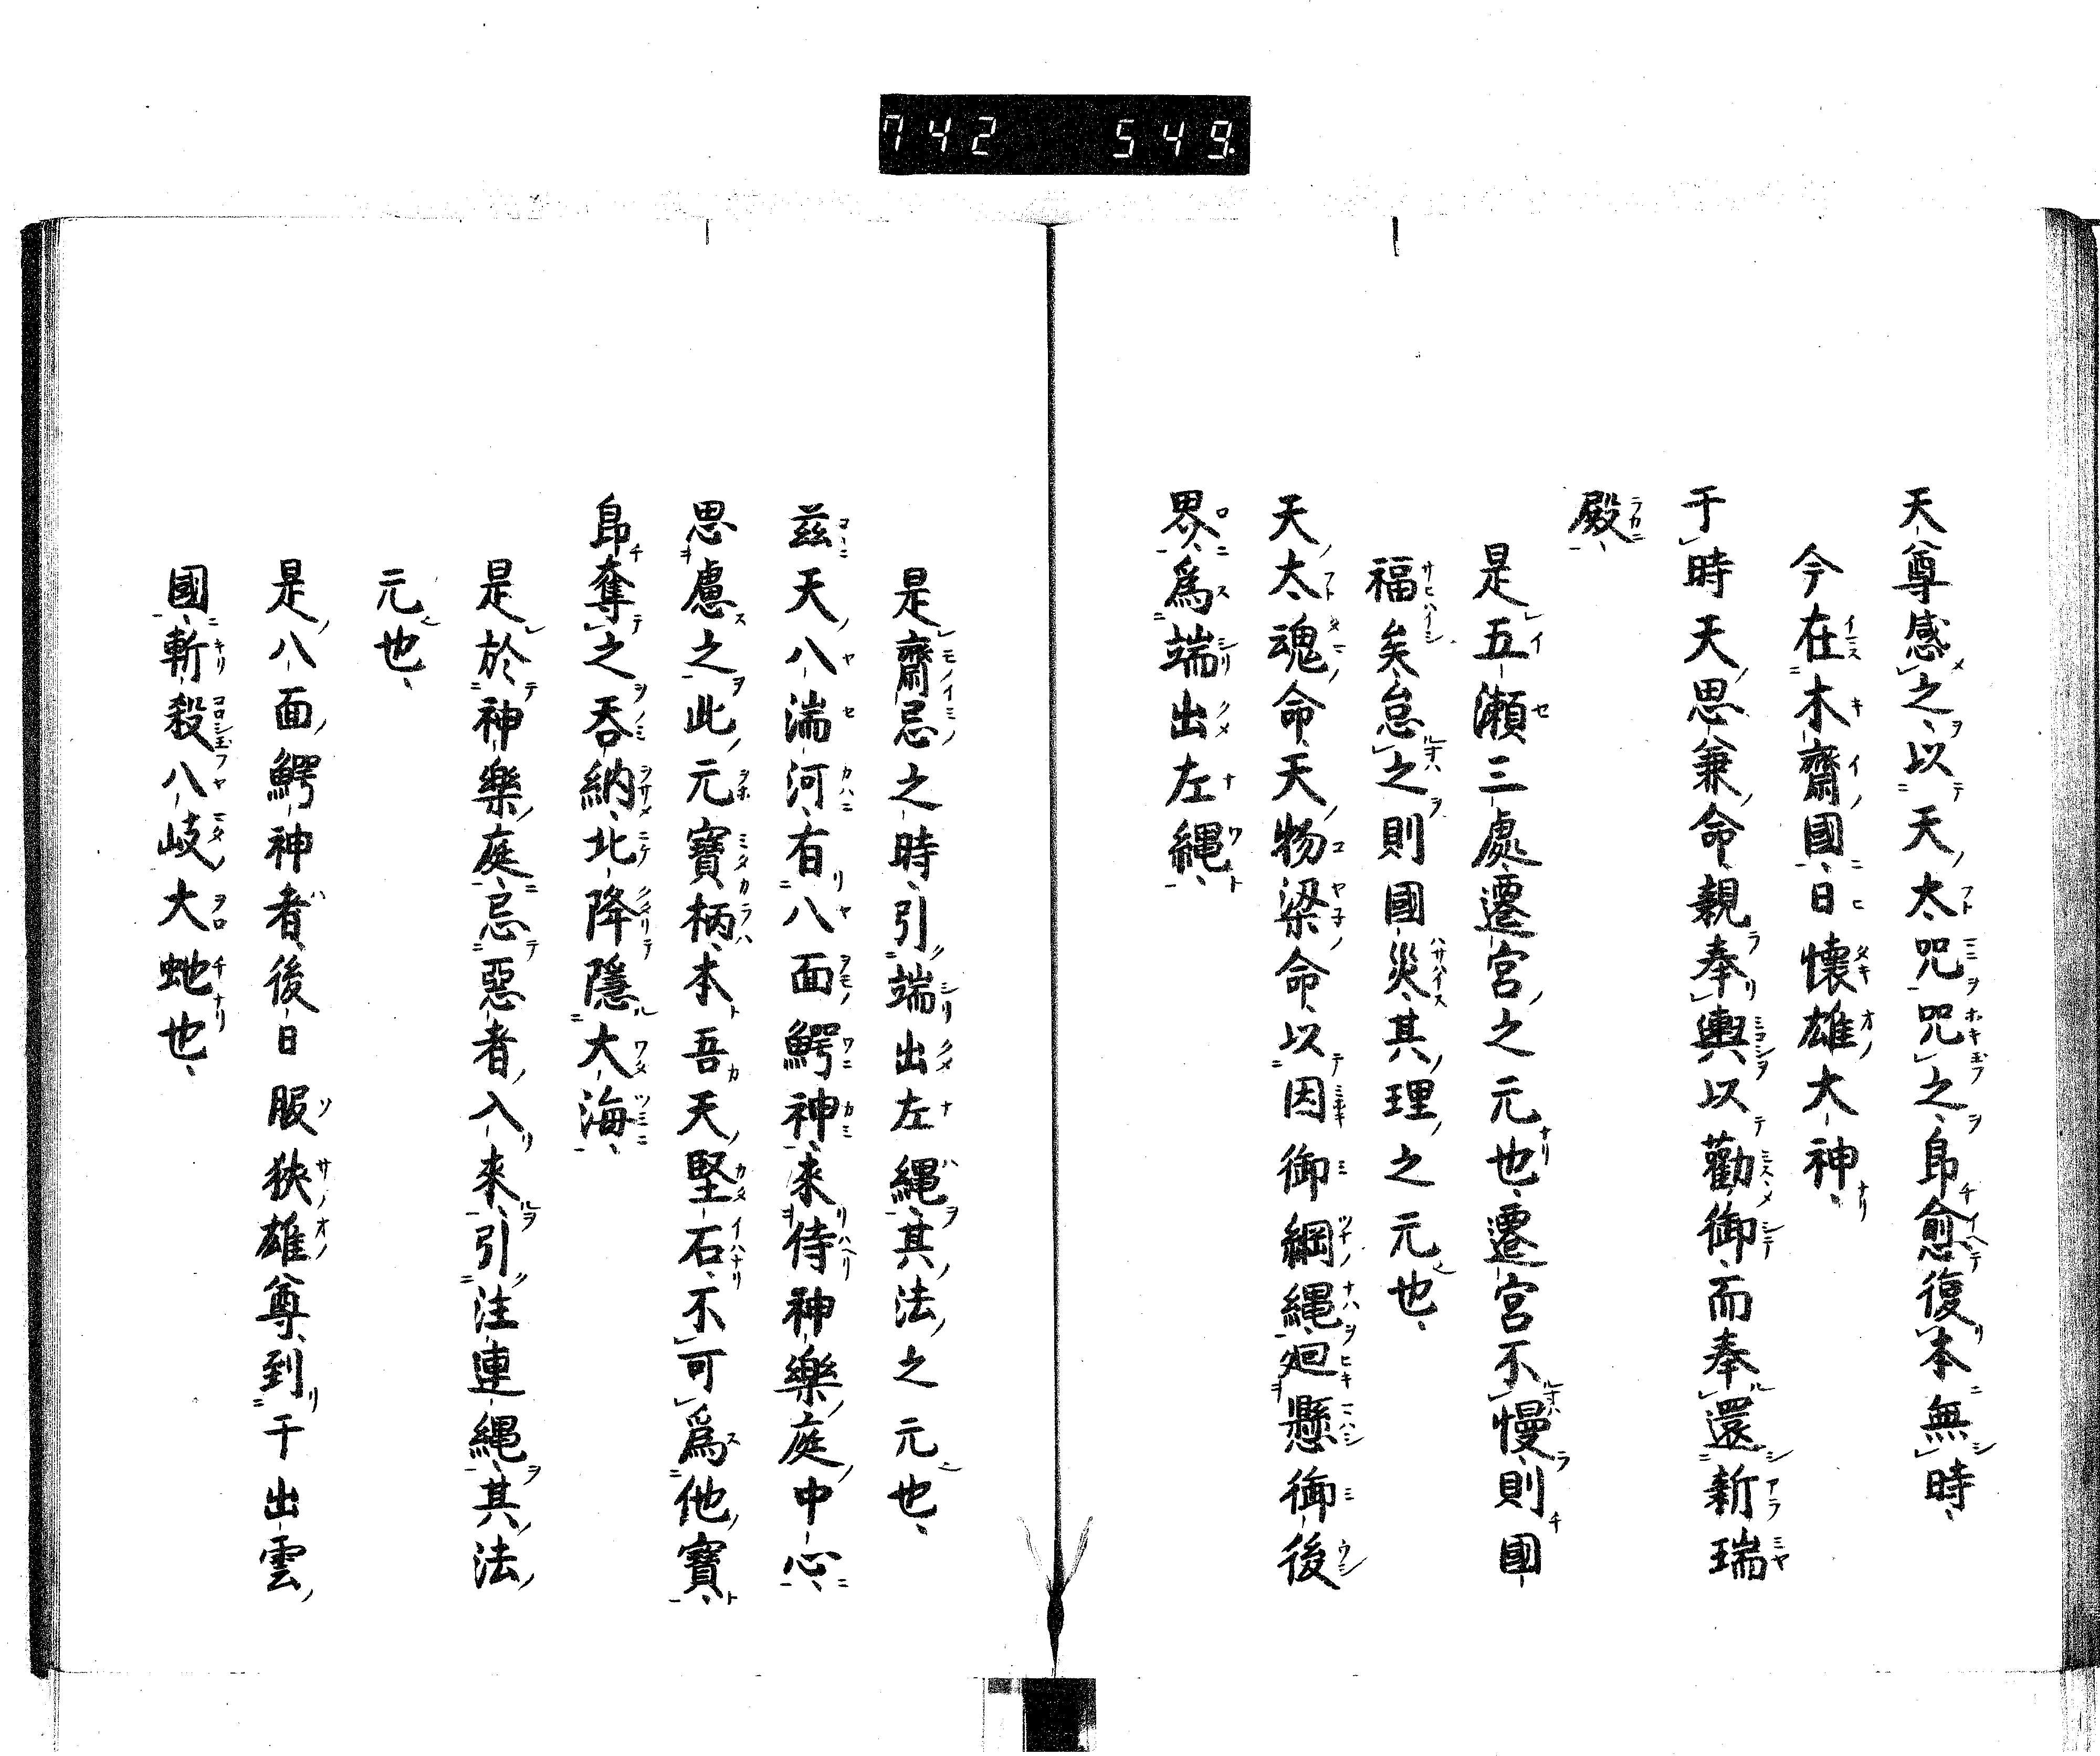 742 549
天尊感之以天太咒咒之卽愈復本無時
今在木齋國日懷雄大神
于時天思兼命親奉輿以勸御而奉還新瑞
殿
是五瀬三處遷宮之元也遷宮不慢則國
福矣怠之則國災其理之元也
天太魂命天物梁命以因御綱縄廻懸御後
界爲端出左縄
是齋忌之時引端出左縄其法之元也
茲天八湍河有八面鰐神來侍神樂庭中心
思慮之此元寶柄本吾天堅石不可爲他寶
卽奪之呑納北降隱大海
是於神樂庭忌惡者入來引注連縄其法
元也
是八面鰐神者後日服狹雄尊到于出雲
國斬殺八岐大虵也